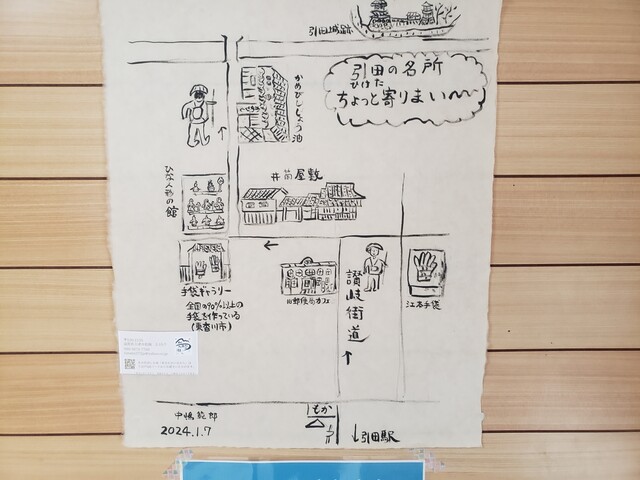 引田城跡
引田の名所
ひけた
ちょっと寄りまい〜
かめびししょう油
ひな人形の館
井筒屋敷
手袋ギャラリー
全国の90%以上の
手袋を作っている
(東香川市)
旧郵便局カフェ
讃岐街道
江本手袋
2024.1.7
↓引田駅